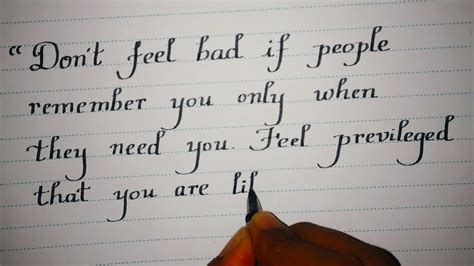 “Don't feel bad if people
remember you only when
they need you Feel previleged
that you are lif